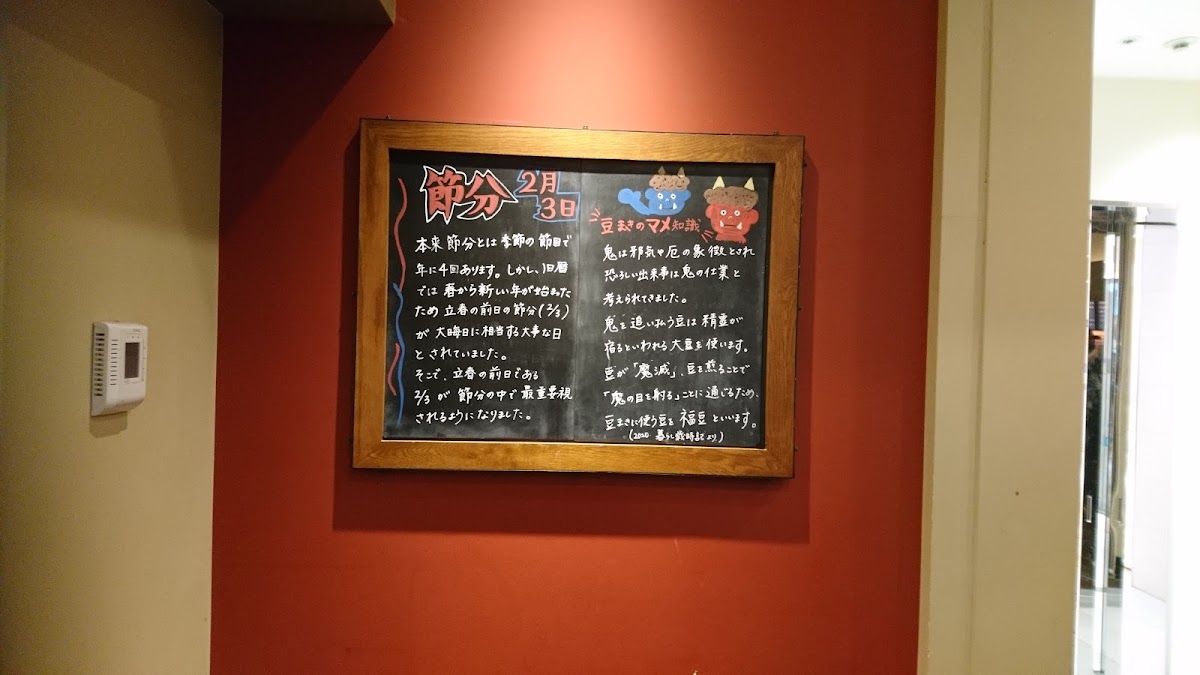 節分 2月
3日
本来 節分とは 季節の 節目で
年に4回あります。しかし、旧暦
では 春から新しい年が始まった
ため 立春の前日の節分(2/3)
が 大晦日に相当する大事な日
と されていました。
そこで、立春の前日である
2/3 が 節分の中で最重要視
されるようになりました。
豆まきのマメ知識
鬼は邪気や厄の象徴とされ
恐ろしい出来事は鬼の仕業と
考えられてきました。
鬼を追い払う豆は 精霊が
宿るといわれる大豆を使います。
豆が「魔滅」、豆を煎ることで
「魔の目を射る」ことに通じるため、
豆まきに使う豆を 福豆 といいます。
(2020 暮らし歳時記より)